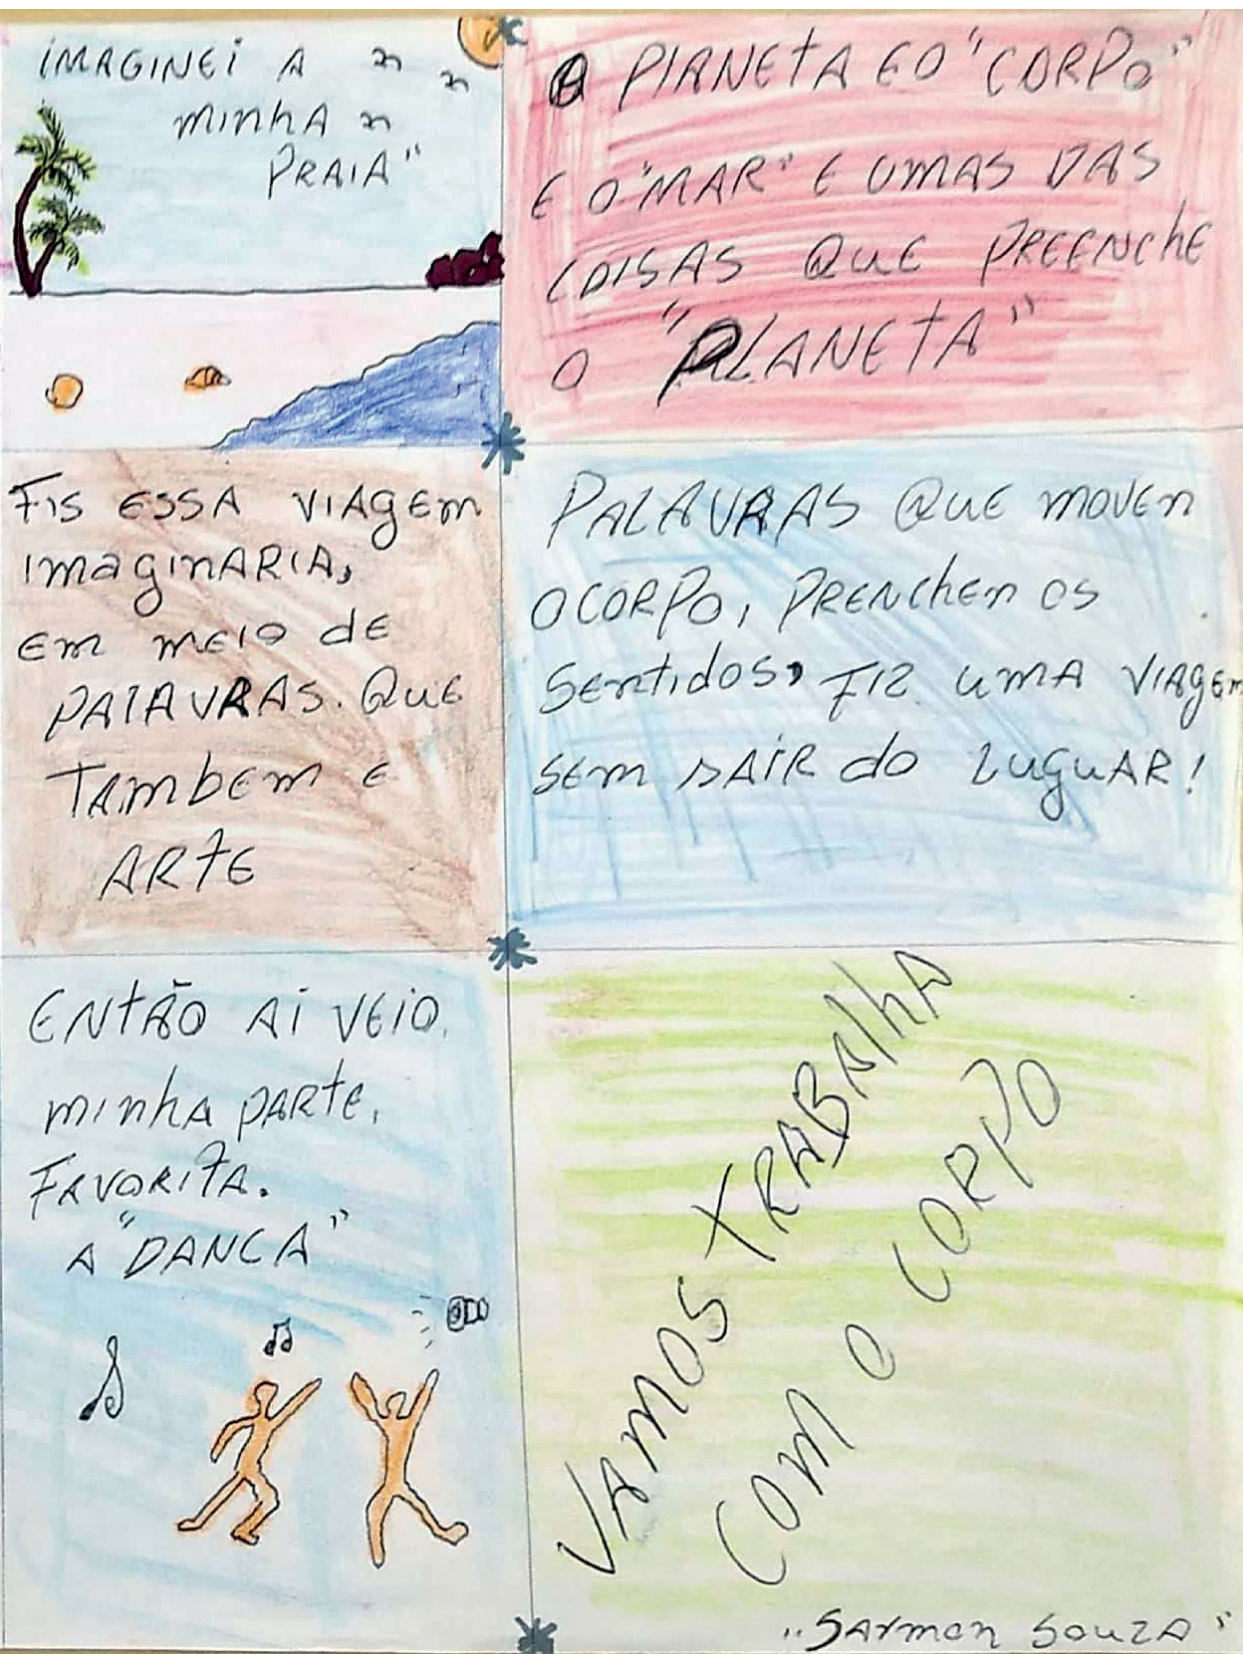 IMAGINEI A
MINHA
PRAIA"
O PLANETA E O "CORPO"
E O "MAR" E UMAS DAS
COISAS QUE PREENCHE
O "PLANETA"
FIS ESSA VIAGEM
IMAGINARIA,
EM MEIO DE
PALAVRAS. QUE
TAMBEM E
ARTE
PALAVRAS QUE MOVEN
O CORPO, PRENCHEM OS
SENTIDOS, FIZ UMA VIAGEM
SEM SAIR DO LUGUAR!
ENTÃO AI VEIO.
MINHA PARTE,
FAVORITA.
A "DANCA"
VAMOS TRABALHA
COM O CORPO
"SARMEN SOUZA"